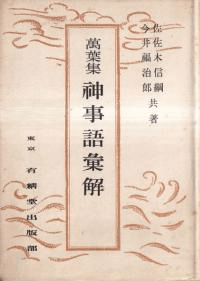 佐佐木信綱
今井福治郎
共著
萬葉集
神事語彙解
東京
有精堂出版部